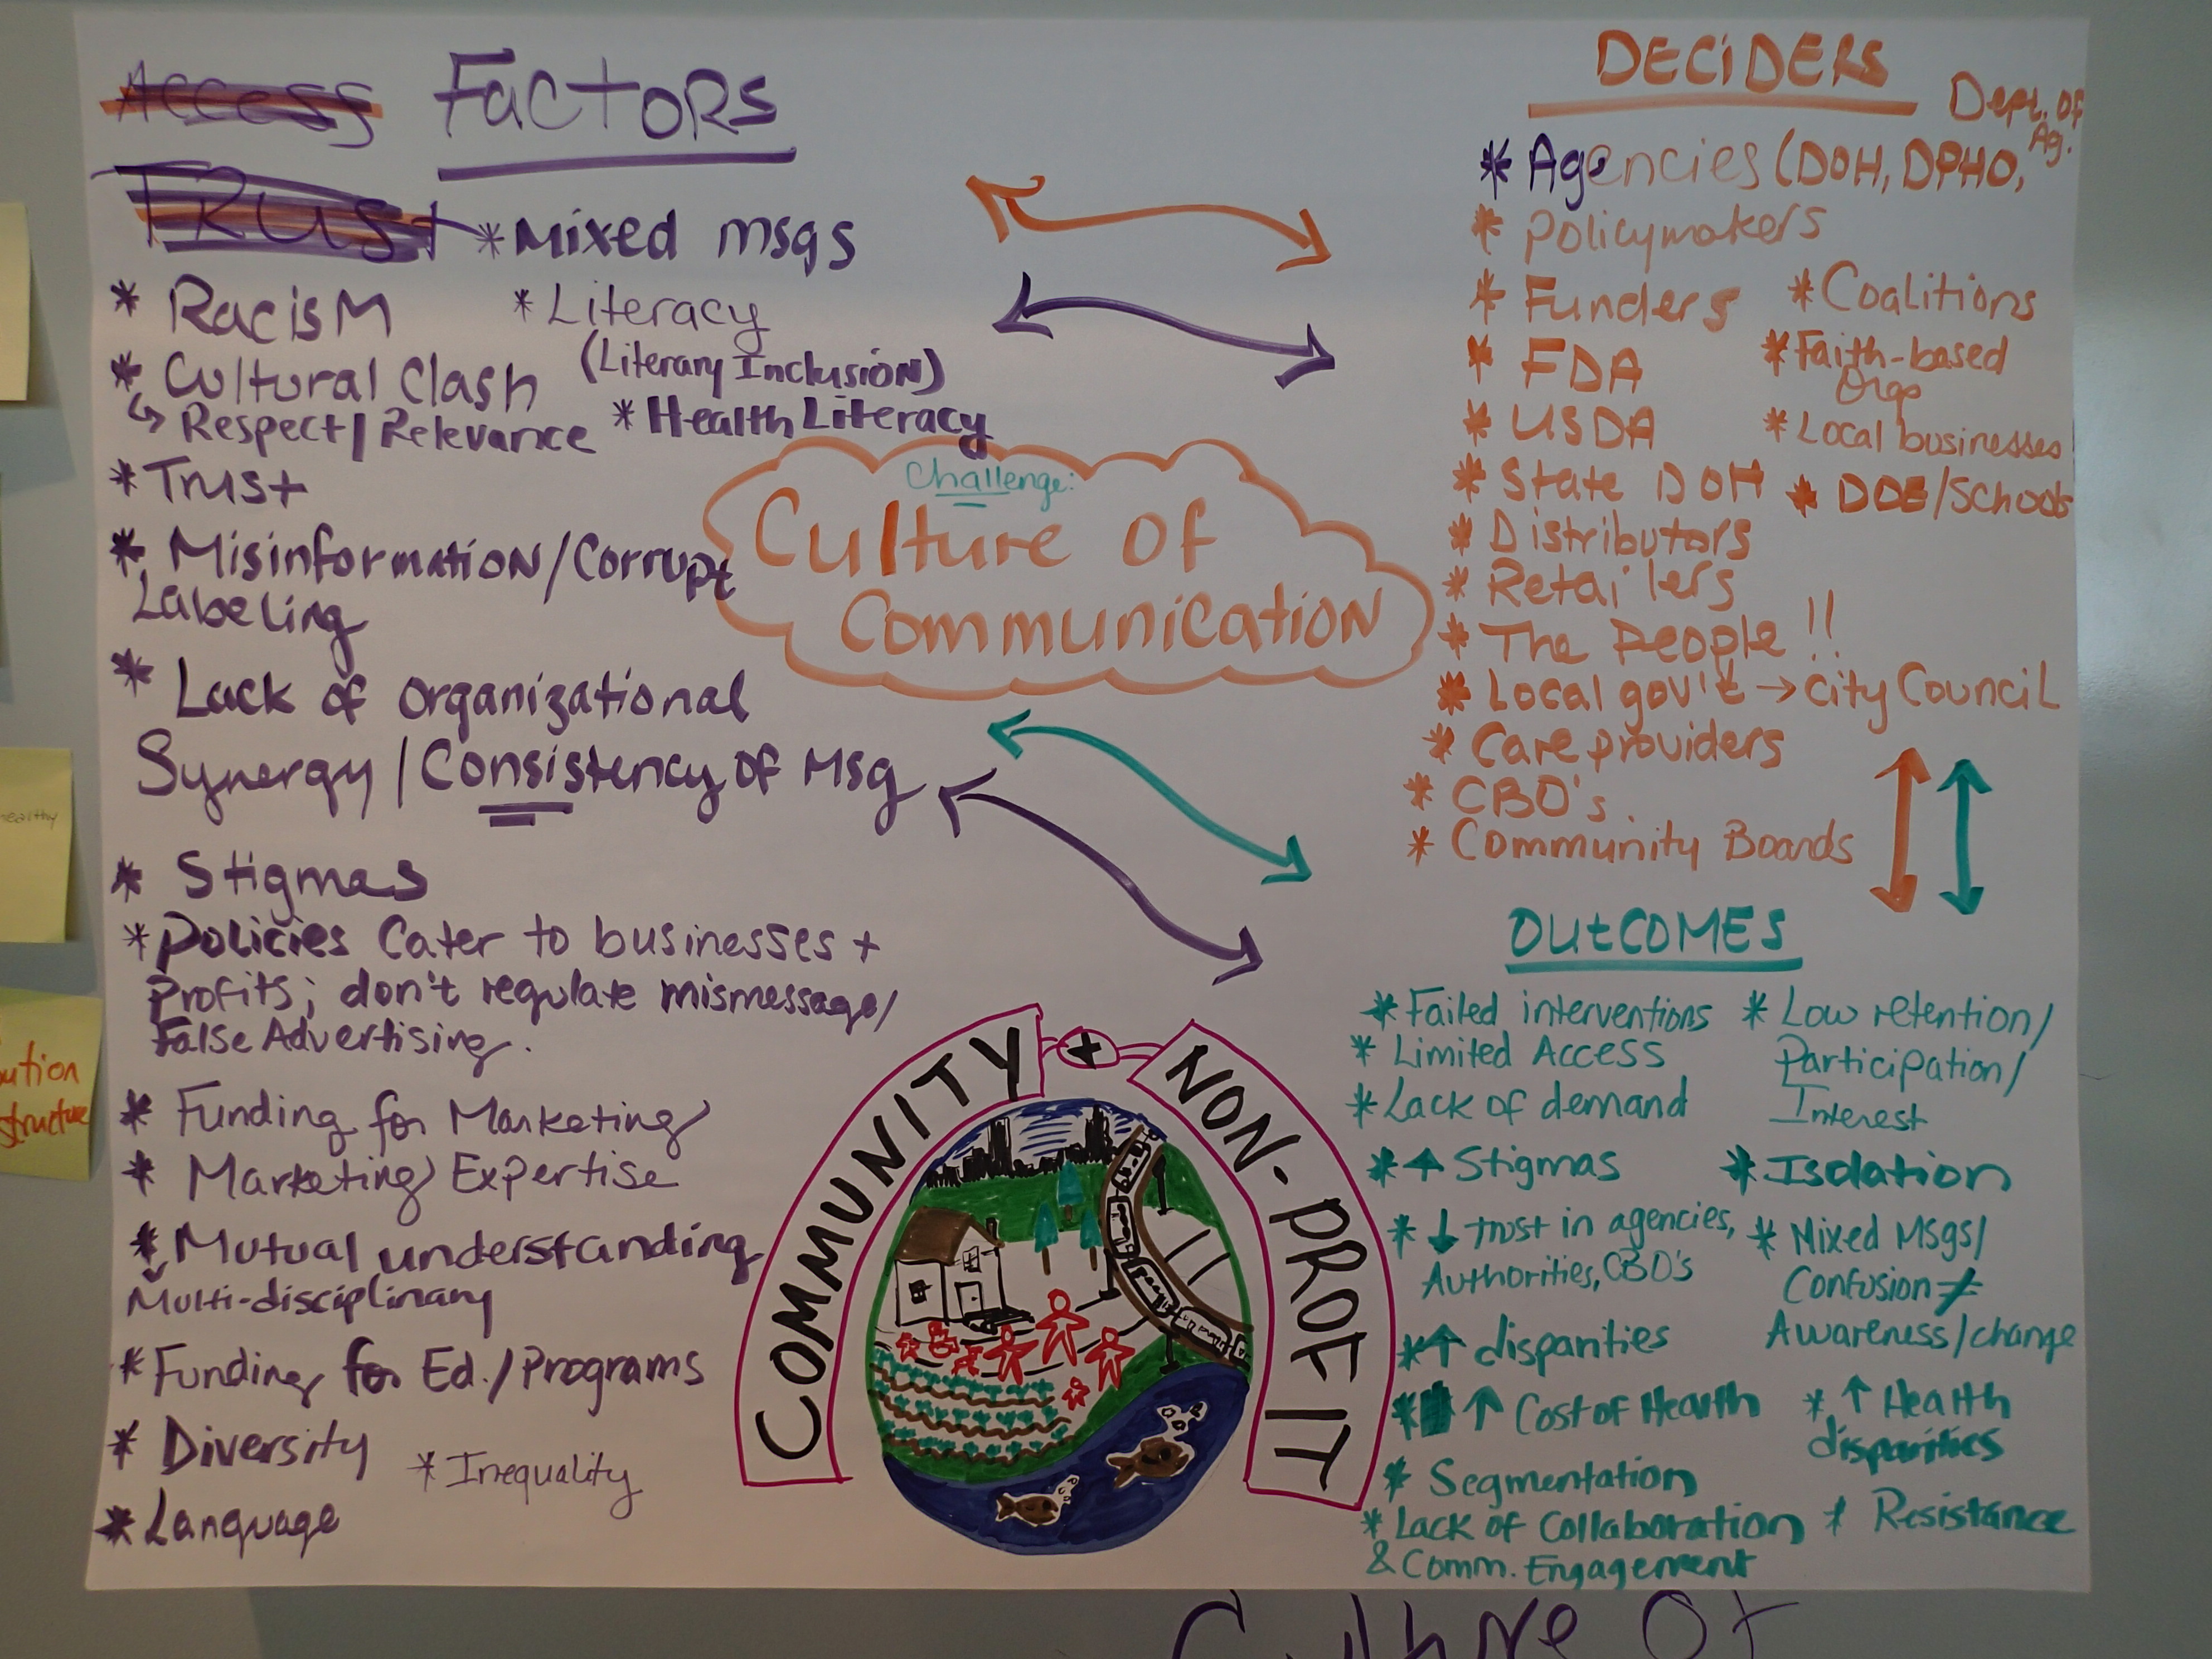 Access FACTORS
TRUST
* Mixed msgs
* Racism
* Literacy
(Literary Inclusion)
* Cultural Clash
↳ Respect/Relevance
* Health Literacy
* Trust
* Misinformation/Corrupt
Labeling
* Lack of organizational
Synergy/Consistency of Msg
* Stigmas
* Policies Cater to businesses +
Profits; don't regulate mismessage/
False Advertising.
* Funding for Marketing
* Marketing Expertise
* Mutual understanding
Multi-disciplinary
* Funding for Ed./Programs
* Diversity
* Inequality
* Language
Challenge:
Culture of
Communication
DECIDERS
Dept. of
Ag.
* Agencies (DOH, DPHO,
* Policymakers
* Funders
* FDA
* USDA
* State DOH
* Distributors
* Retailers
* The People!!
* Local gov't → City Council
* Care providers
* CBO's.
* Community Boards
* Coalitions
* Faith-based
Orgs
* Local businesses
* DOE/Schools
OUTCOMES
* Failed interventions
* Limited Access
* Lack of demand
* ↑ Stigmas
* ↓ trust in agencies,
Authorities, CBO's
* ↑ disparities
* ↑ Cost of Health
* Segmentation
* Lack of Collaboration
& Comm. Engagement
* Low retention/
Participation/
Interest
* Isolation
* Mixed Msgs/
Confusion ≠
Awareness/change
* ↑ Health
disparities
* Resistance
COMMUNITY + NON-PROFIT
healthy
ution
structure
Culture Of